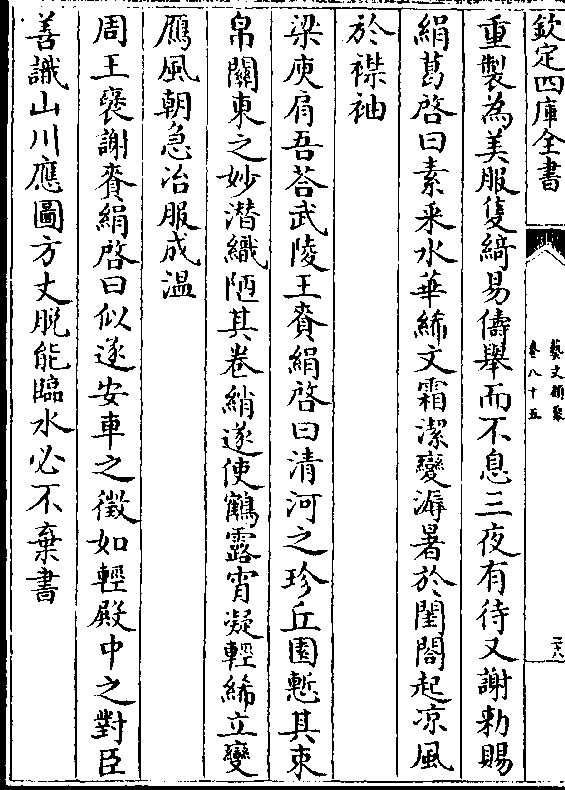 欽定四庫全書
藝文類聚
卷八十五
二十八
重製為美服隻綺易儔舉而不息三夜有待又謝勅賜
絹葛啓曰素采水華絺文霜潔變溽暑於閨閤起凉風
於襟袖
梁庾肩吾荅武陵王賚絹啓曰清河之珍丘園慙其束
帛關東之妙潛織陋其卷綃遂使鶴露宵凝輕絺立變
鴈風朝急冶服成温
周王襃謝賚絹啓曰似遂安車之徵如輕殿中之對臣
善識山川應圖方丈脱能臨水必不棄書